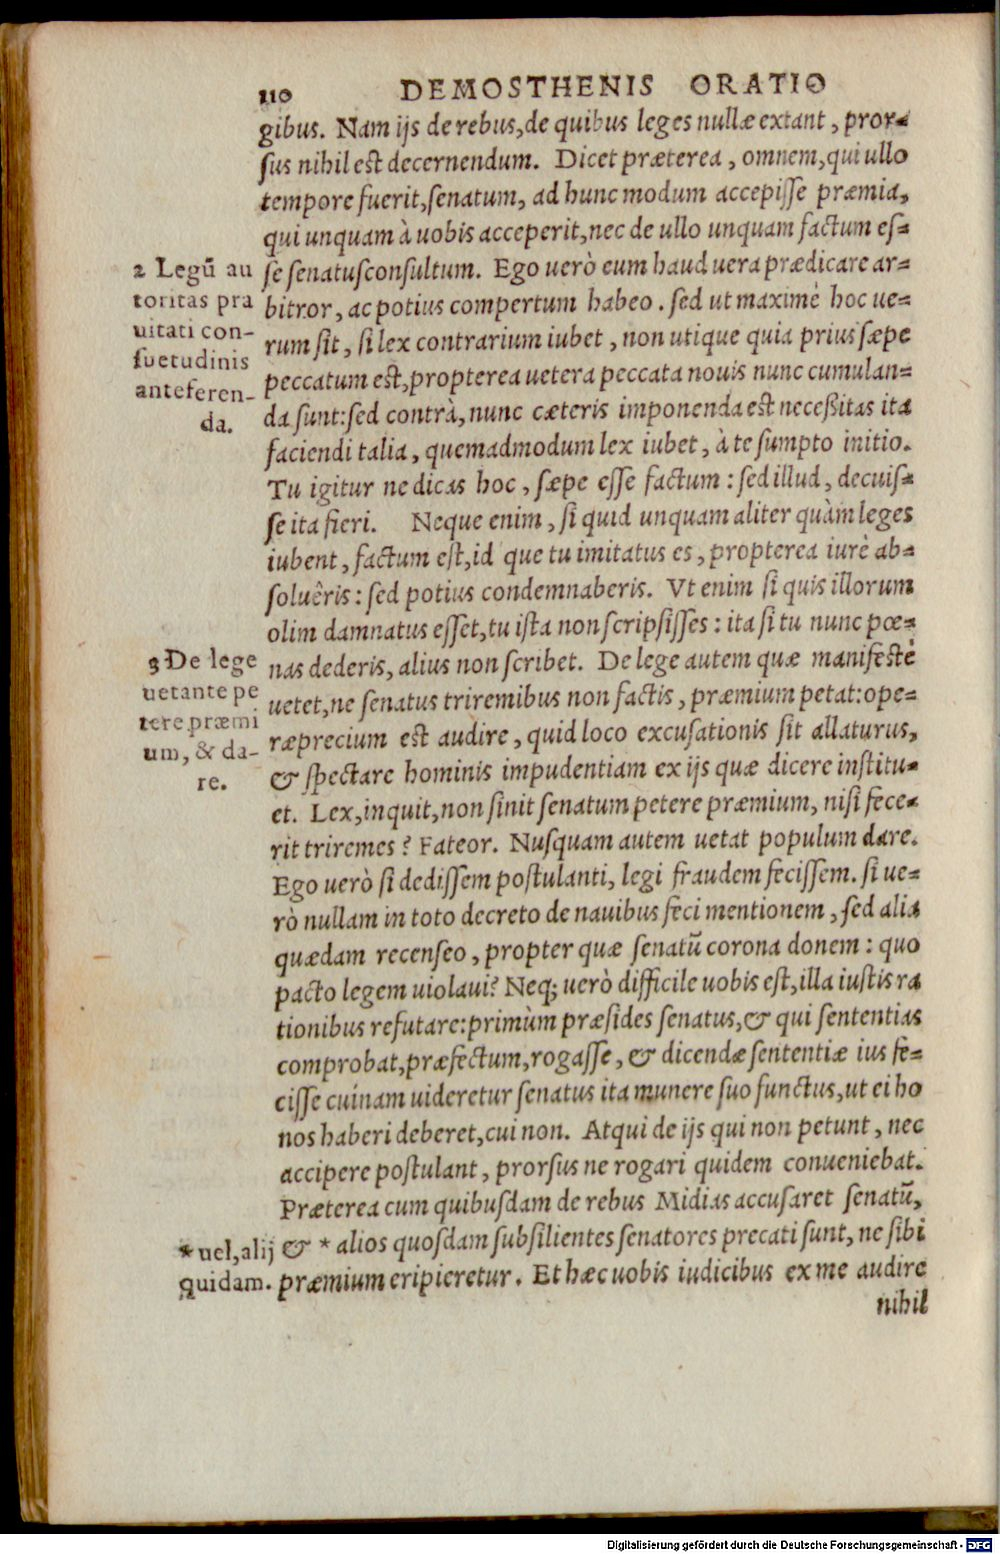 110 DEMOSTHENIS ORATIO
gibus. Nam ijs de rebus, de quibus leges nullæ extant, pror-
sus nihil est decernendum. Dicet præterea, omnem, qui ullo
tempore fuerit, senatum, ad hunc modum accepisse præmia,
qui unquam à uobis acceperit, nec de ullo unquam factum es-
se senatusconsultum. Ego uerò eum haud uera prædicare ar-
bitror, ac potius compertum habeo. sed ut maximè hoc ue-
rum sit, si lex contrarium iubet, non utique quia prius sæpe
peccatum est, propterea uetera peccata nouis nunc cumulan-
da sunt: sed contrà, nunc cæteris imponenda est neceßitas ita
faciendi talia, quemadmodum lex iubet, à te sumpto initio.
Tu igitur ne dicas hoc, sæpe esse factum: sed illud, decuis-
se ita fieri. Neque enim, si quid unquam aliter quàm leges
iubent, factum est, id que tu imitatus es, propterea iurè ab-
soluêris: sed potius condemnaberis. Vt enim si quis illorum
olim damnatus esset, tu ista non scripsisses: ita si tu nunc pœ-
nas dederis, alius non scribet. De lege autem quæ manifestè
uetet, ne senatus triremibus non factis, præmium petat: ope-
ræprecium est audire, quid loco excusationis sit allaturus,
& spectare hominis impudentiam ex ijs quæ dicere institu-
et. Lex, inquit, non sinit senatum petere præmium, nisi fece-
rit triremes? Fateor. Nusquam autem uetat populum dare.
Ego uerò si dedissem postulanti, legi fraudem fecissem. si ue-
rò nullam in toto decreto de nauibus feci mentionem, sed alia
quædam recenseo, propter quæ senatū corona donem: quo
pacto legem uiolaui? Neq; uerò difficile uobis est, illa iustis ra
tionibus refutare: primùm præsides senatus, & qui sententias
comprobat, præfectum, rogasse, & dicendæ sententiæ ius fe-
cisse cuínam uideretur senatus ita munere suo functus, ut ei ho
nos haberi deberet, cui non. Atqui de ijs qui non petunt, nec
accipere postulant, prorsus ne rogari quidem conueniebat.
Præterea cum quibusdam de rebus Midias accusaret senatū,
& * alios quosdam subsilientes senatores precati sunt, ne sibi
præmium eriperetur. Et hæc uobis iudicibus ex me audire
nihil
2 Legū au
toritas pra
uitati con-
suetudinis
anteferen-
da.
3 De lege
uetante pe
tere præmi
um, & da-
re.
* uel, alij
quidam.
Digitalisierung gefördert durch die Deutsche Forschungsgemeinschaft - DFG